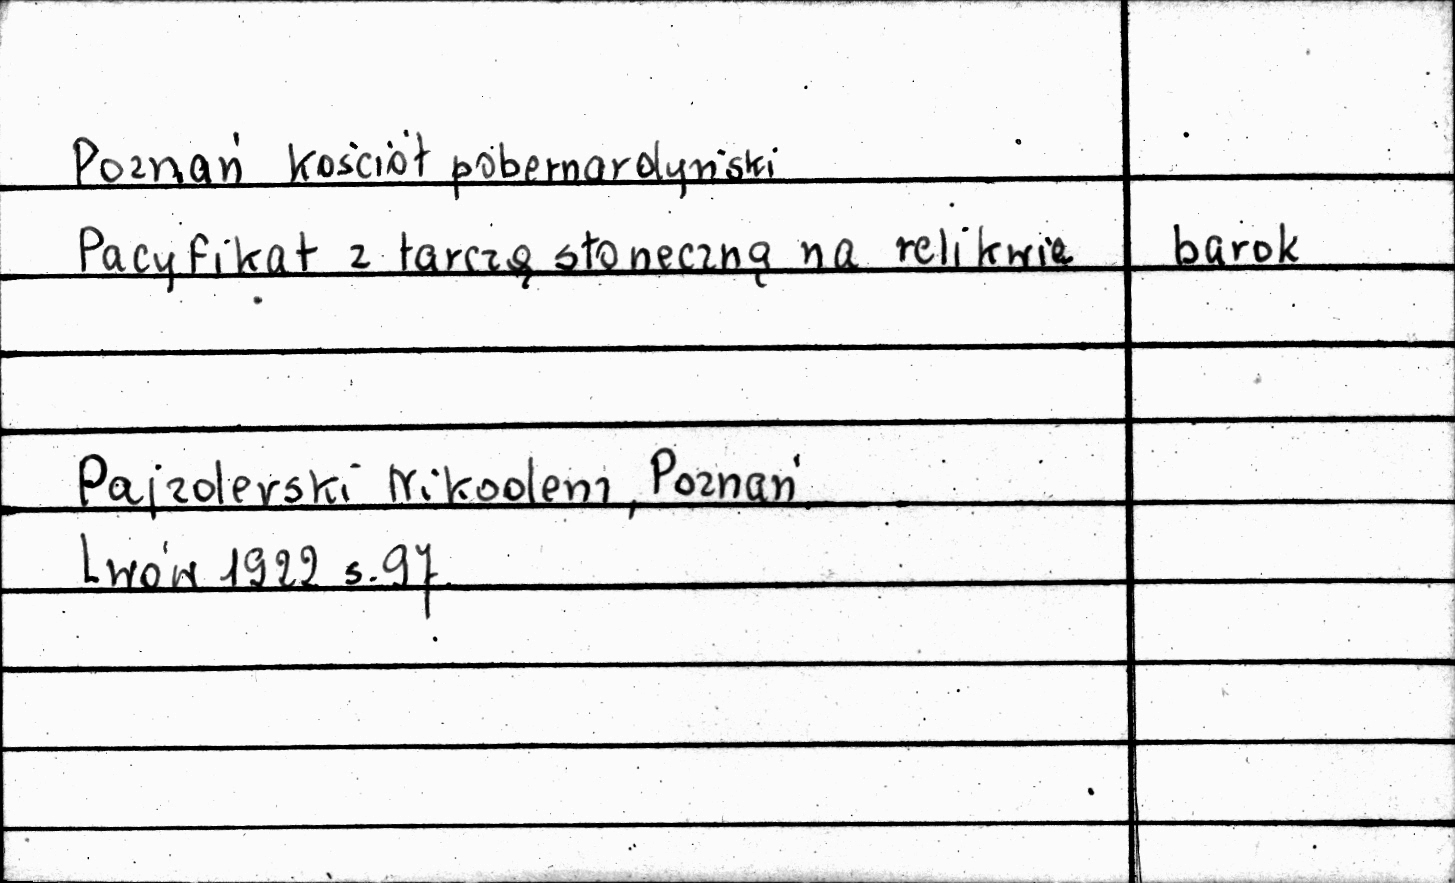 Poznań kościół pobernardyński
Pacyfikat z tarczą słoneczną na relikwie barok
Pajzderski Nikodem, Poznań
Lwów 1922 s. 97